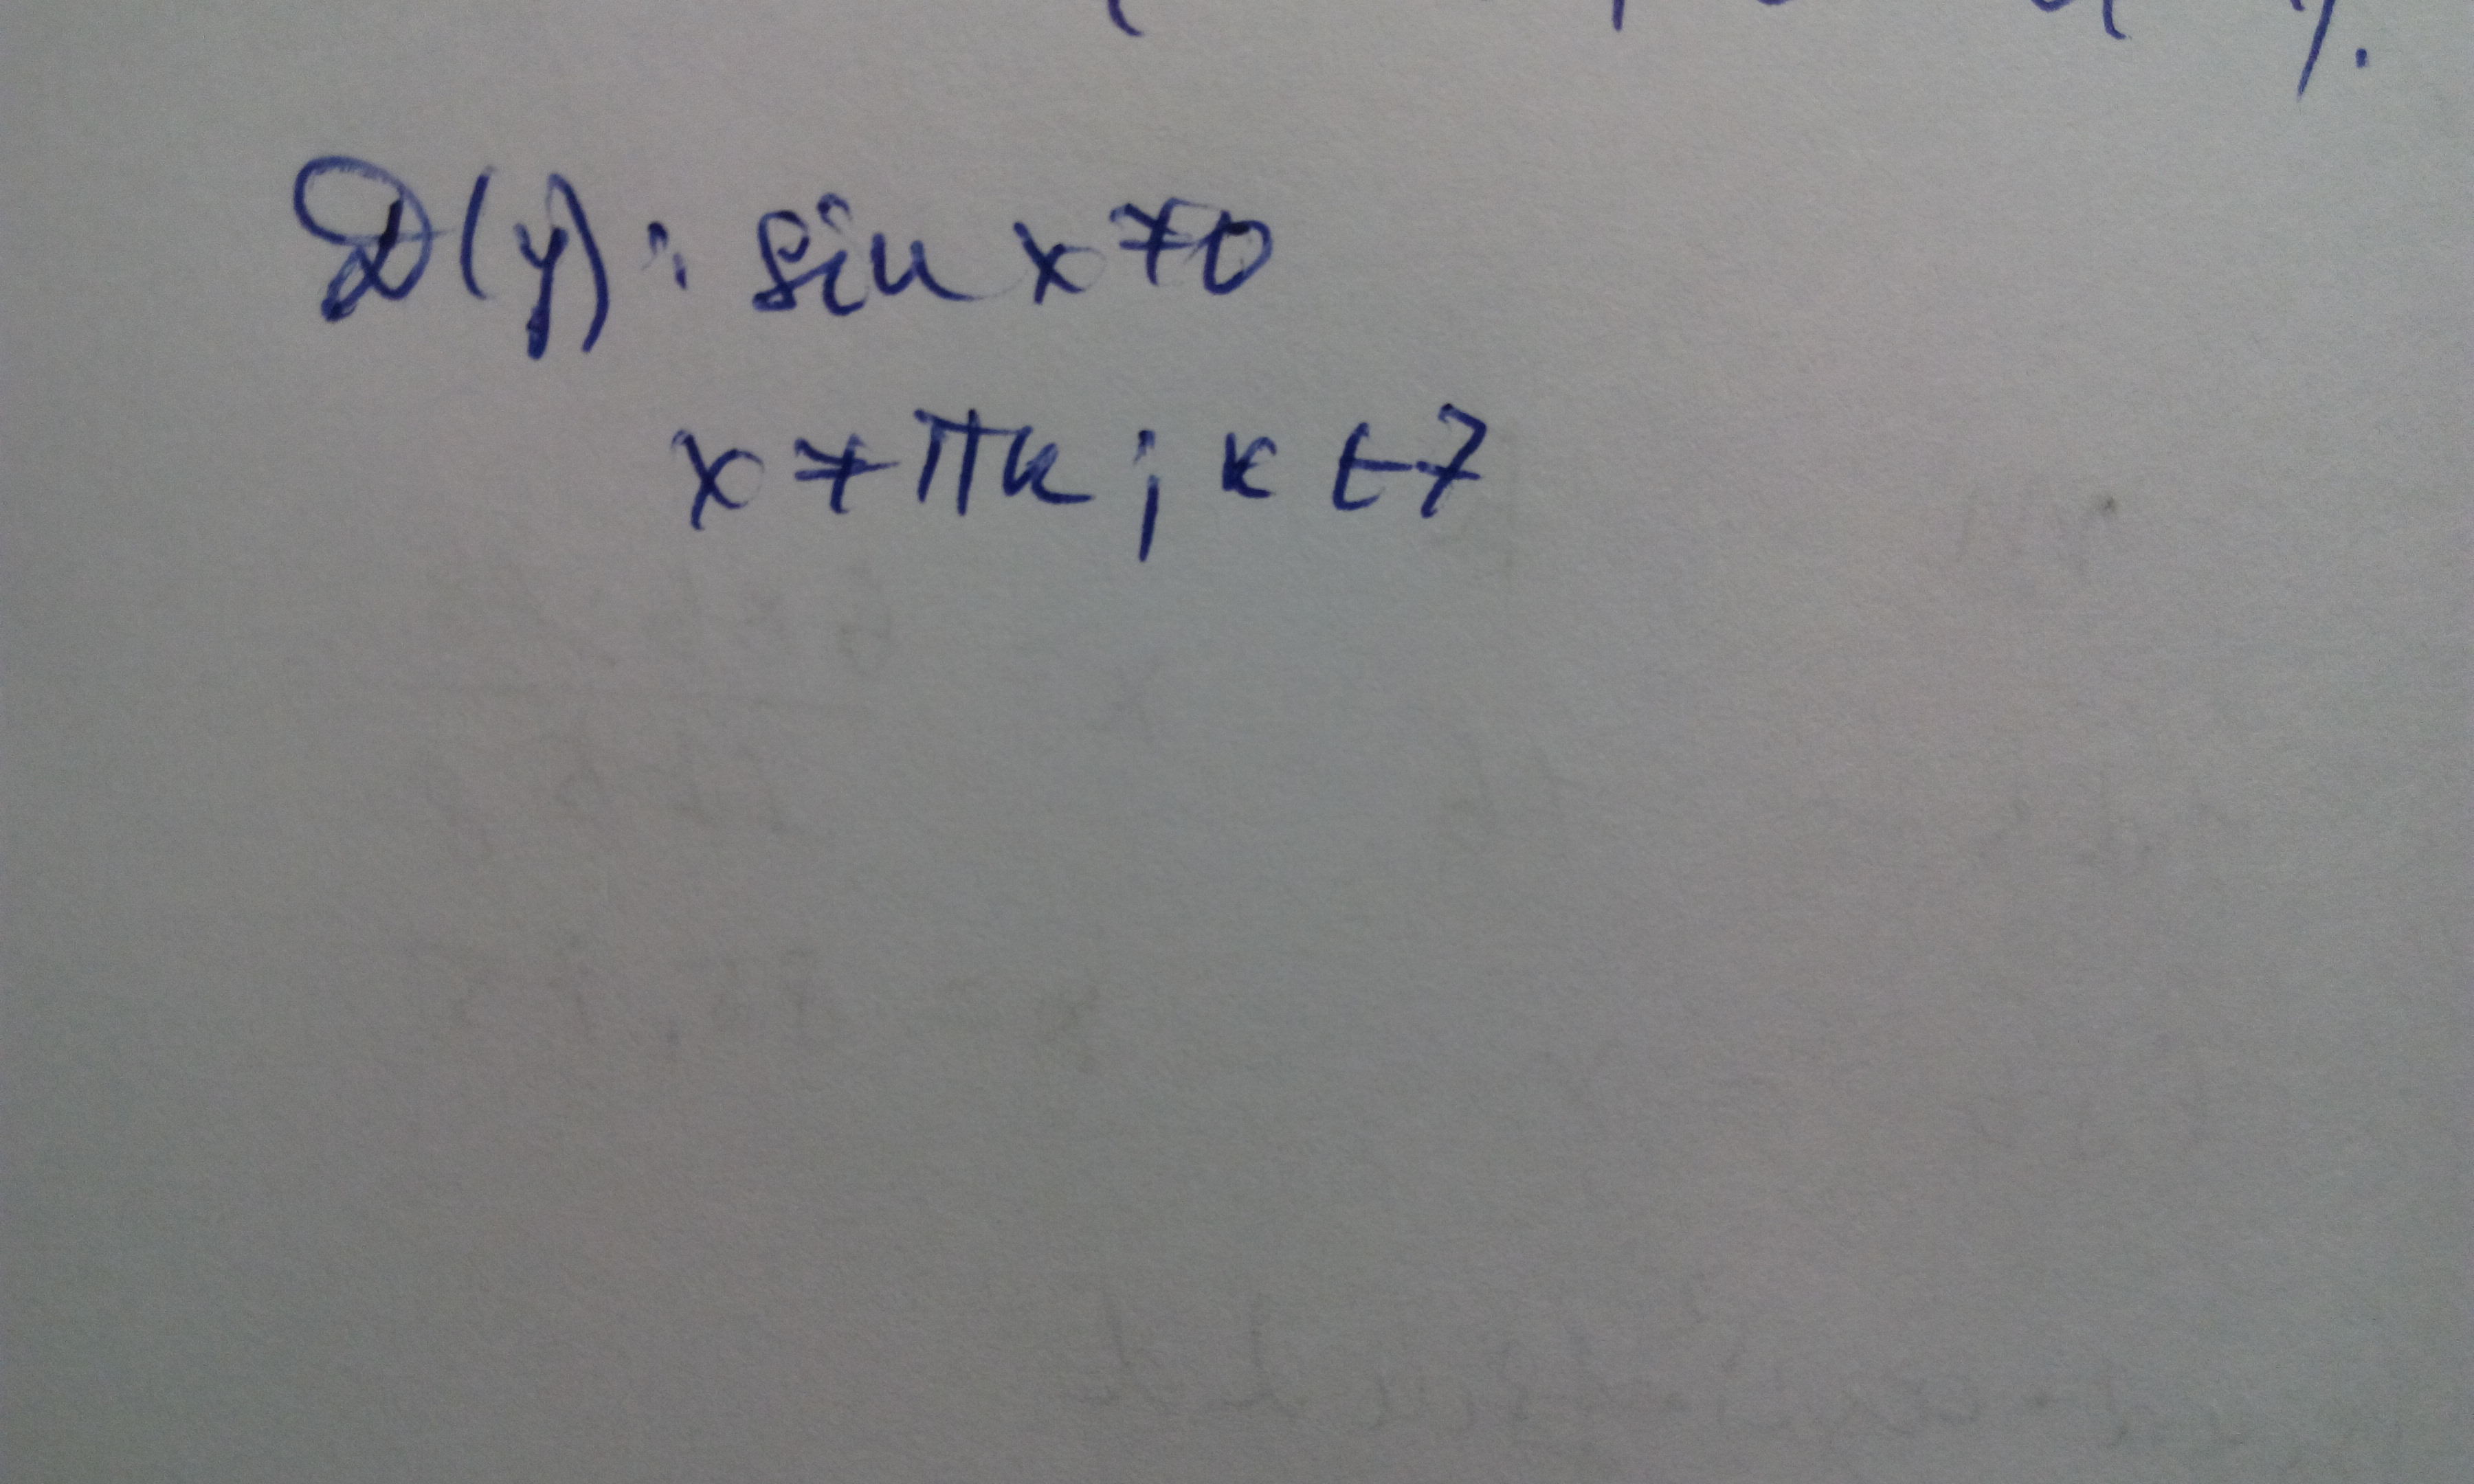 D(y): sin x ≠ 0
x ≠ πk; k ∈ Z